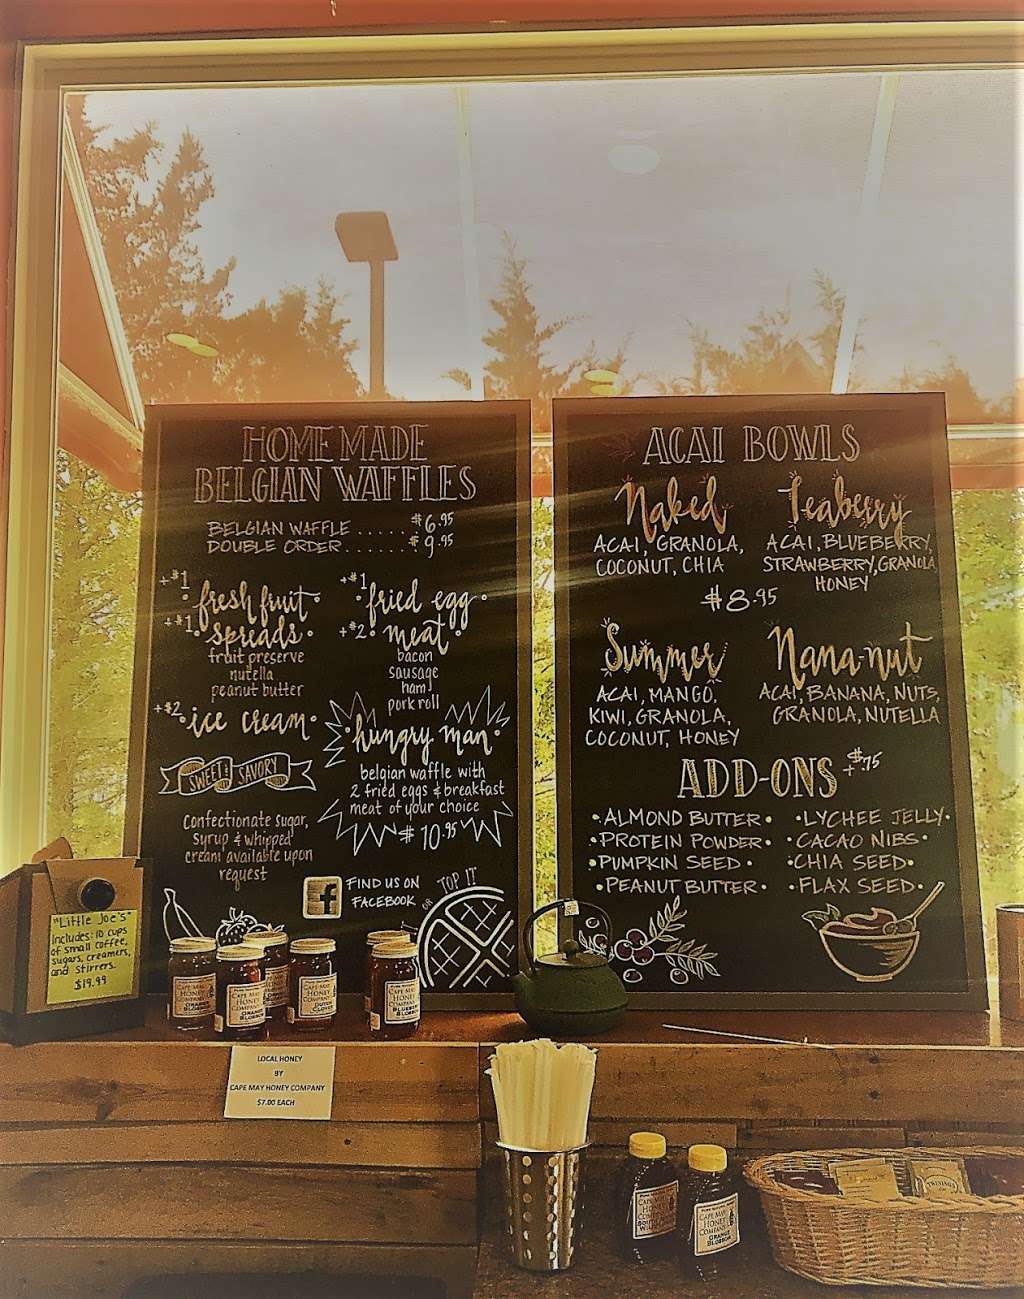 HOME MADE
BELGIAN WAFFLES
BELGIAN WAFFLE ..... $6.95
DOUBLE ORDER ...... $9.95
+$1 fresh fruit
+$1 spreads
fruit preserve
nutella
peanut butter
+$2 ice cream
SWEET & SAVORY
Confectionate sugar,
syrup & whipped
cream available upon
request
+$1 fried egg
+$2 meat
bacon
sausage
ham
pork roll
hungry man
belgian waffle with
2 fried eggs & breakfast
meat of your choice
$10.95
f
FIND US ON
FACEBOOK
OR TOP IT
ACAI BOWLS
Naked
ACAI, GRANOLA,
COCONUT, CHIA
Teaberry
ACAI, BLUEBERRY,
STRAWBERRY, GRANOLA
HONEY
$8.95
Summer
ACAI, MANGO,
KIWI, GRANOLA,
COCONUT, HONEY
Nana-nut
ACAI, BANANA, NUTS,
GRANOLA, NUTELLA
ADD-ONS +$.75
•ALMOND BUTTER•
•PROTEIN POWDER•
•PUMPKIN SEED•
•PEANUT BUTTER•
•LYCHEE JELLY•
•CACAO NIBS•
•CHIA SEED•
•FLAX SEED•
"Little Joe's"
Includes: 10 cups
of small coffee,
sugars, creamers,
and stirrers.
$19.99
CAPE MAY
HONEY
COMPANY
ORANGE
BLOSSOM
CAPE MAY
HONEY
COMPANY
ORANGE
BLOSSOM
CAPE MAY
HONEY
COMPANY
CLOVER
CAPE MAY
HONEY
COMPANY
BLUEBERRY
BLOSSOM
LOCAL HONEY
BY
CAPE MAY HONEY COMPANY
$7.00 EACH
CAPE MAY
HONEY
COMPANY
CAPE MAY
HONEY
COMPANY
ORANGE
BLOSSOM
TWININGS